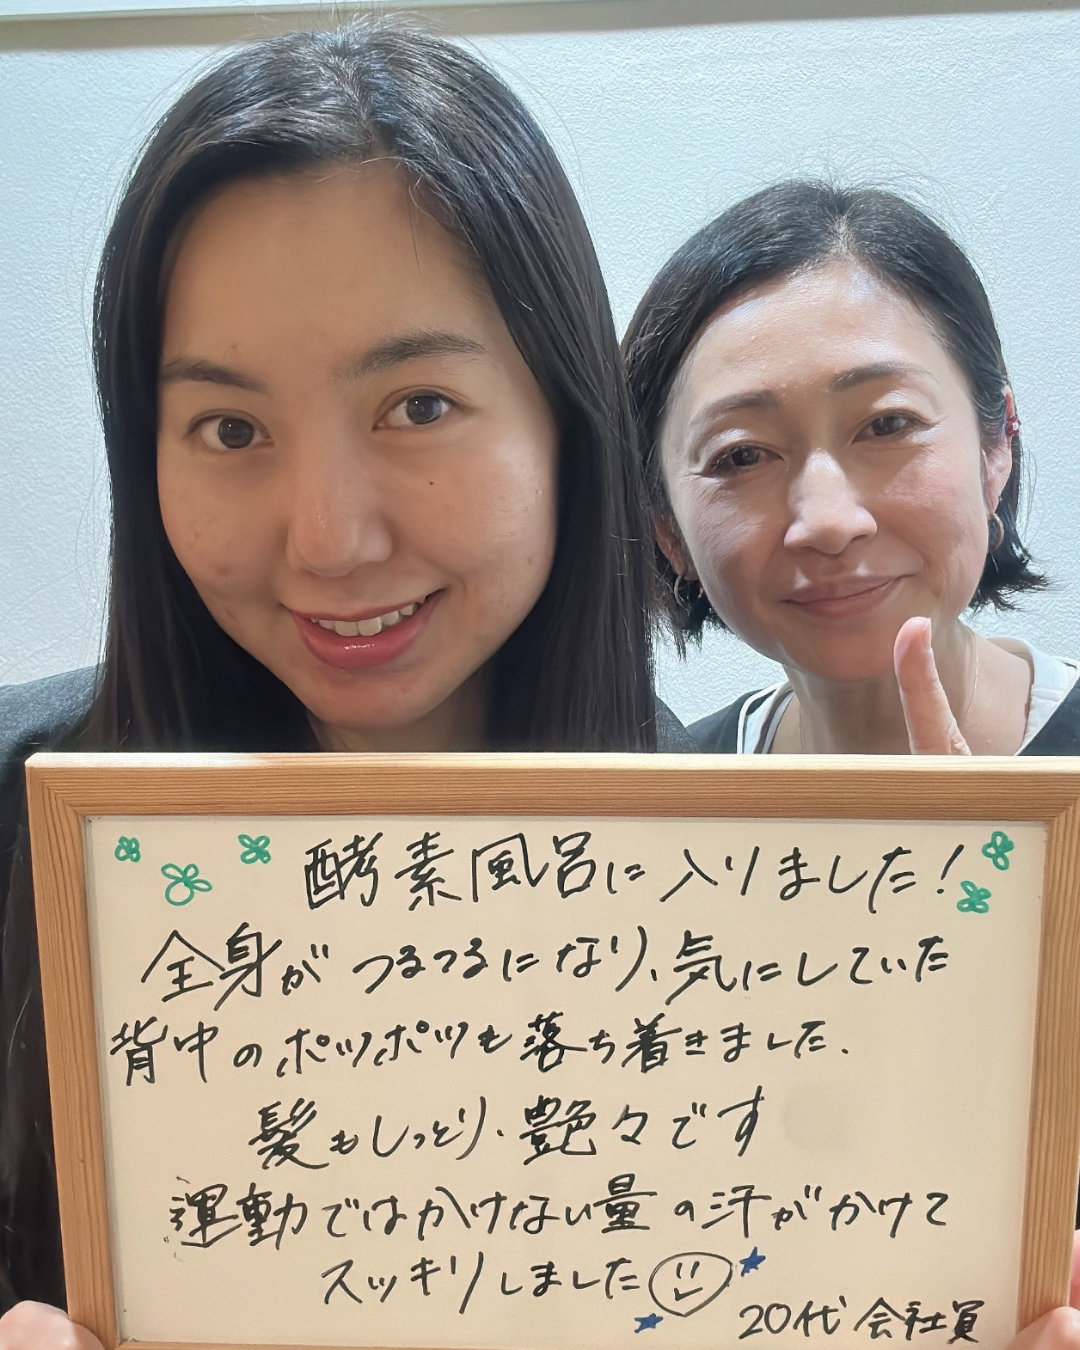 酵素風呂に入りました！
全身がつるつるになり、気にしていた
背中のポツポツも落ち着きました.
髪もしっとり、艶々です
運動ではかけない量の汗がかけて
スッキリしました
20代 会社員